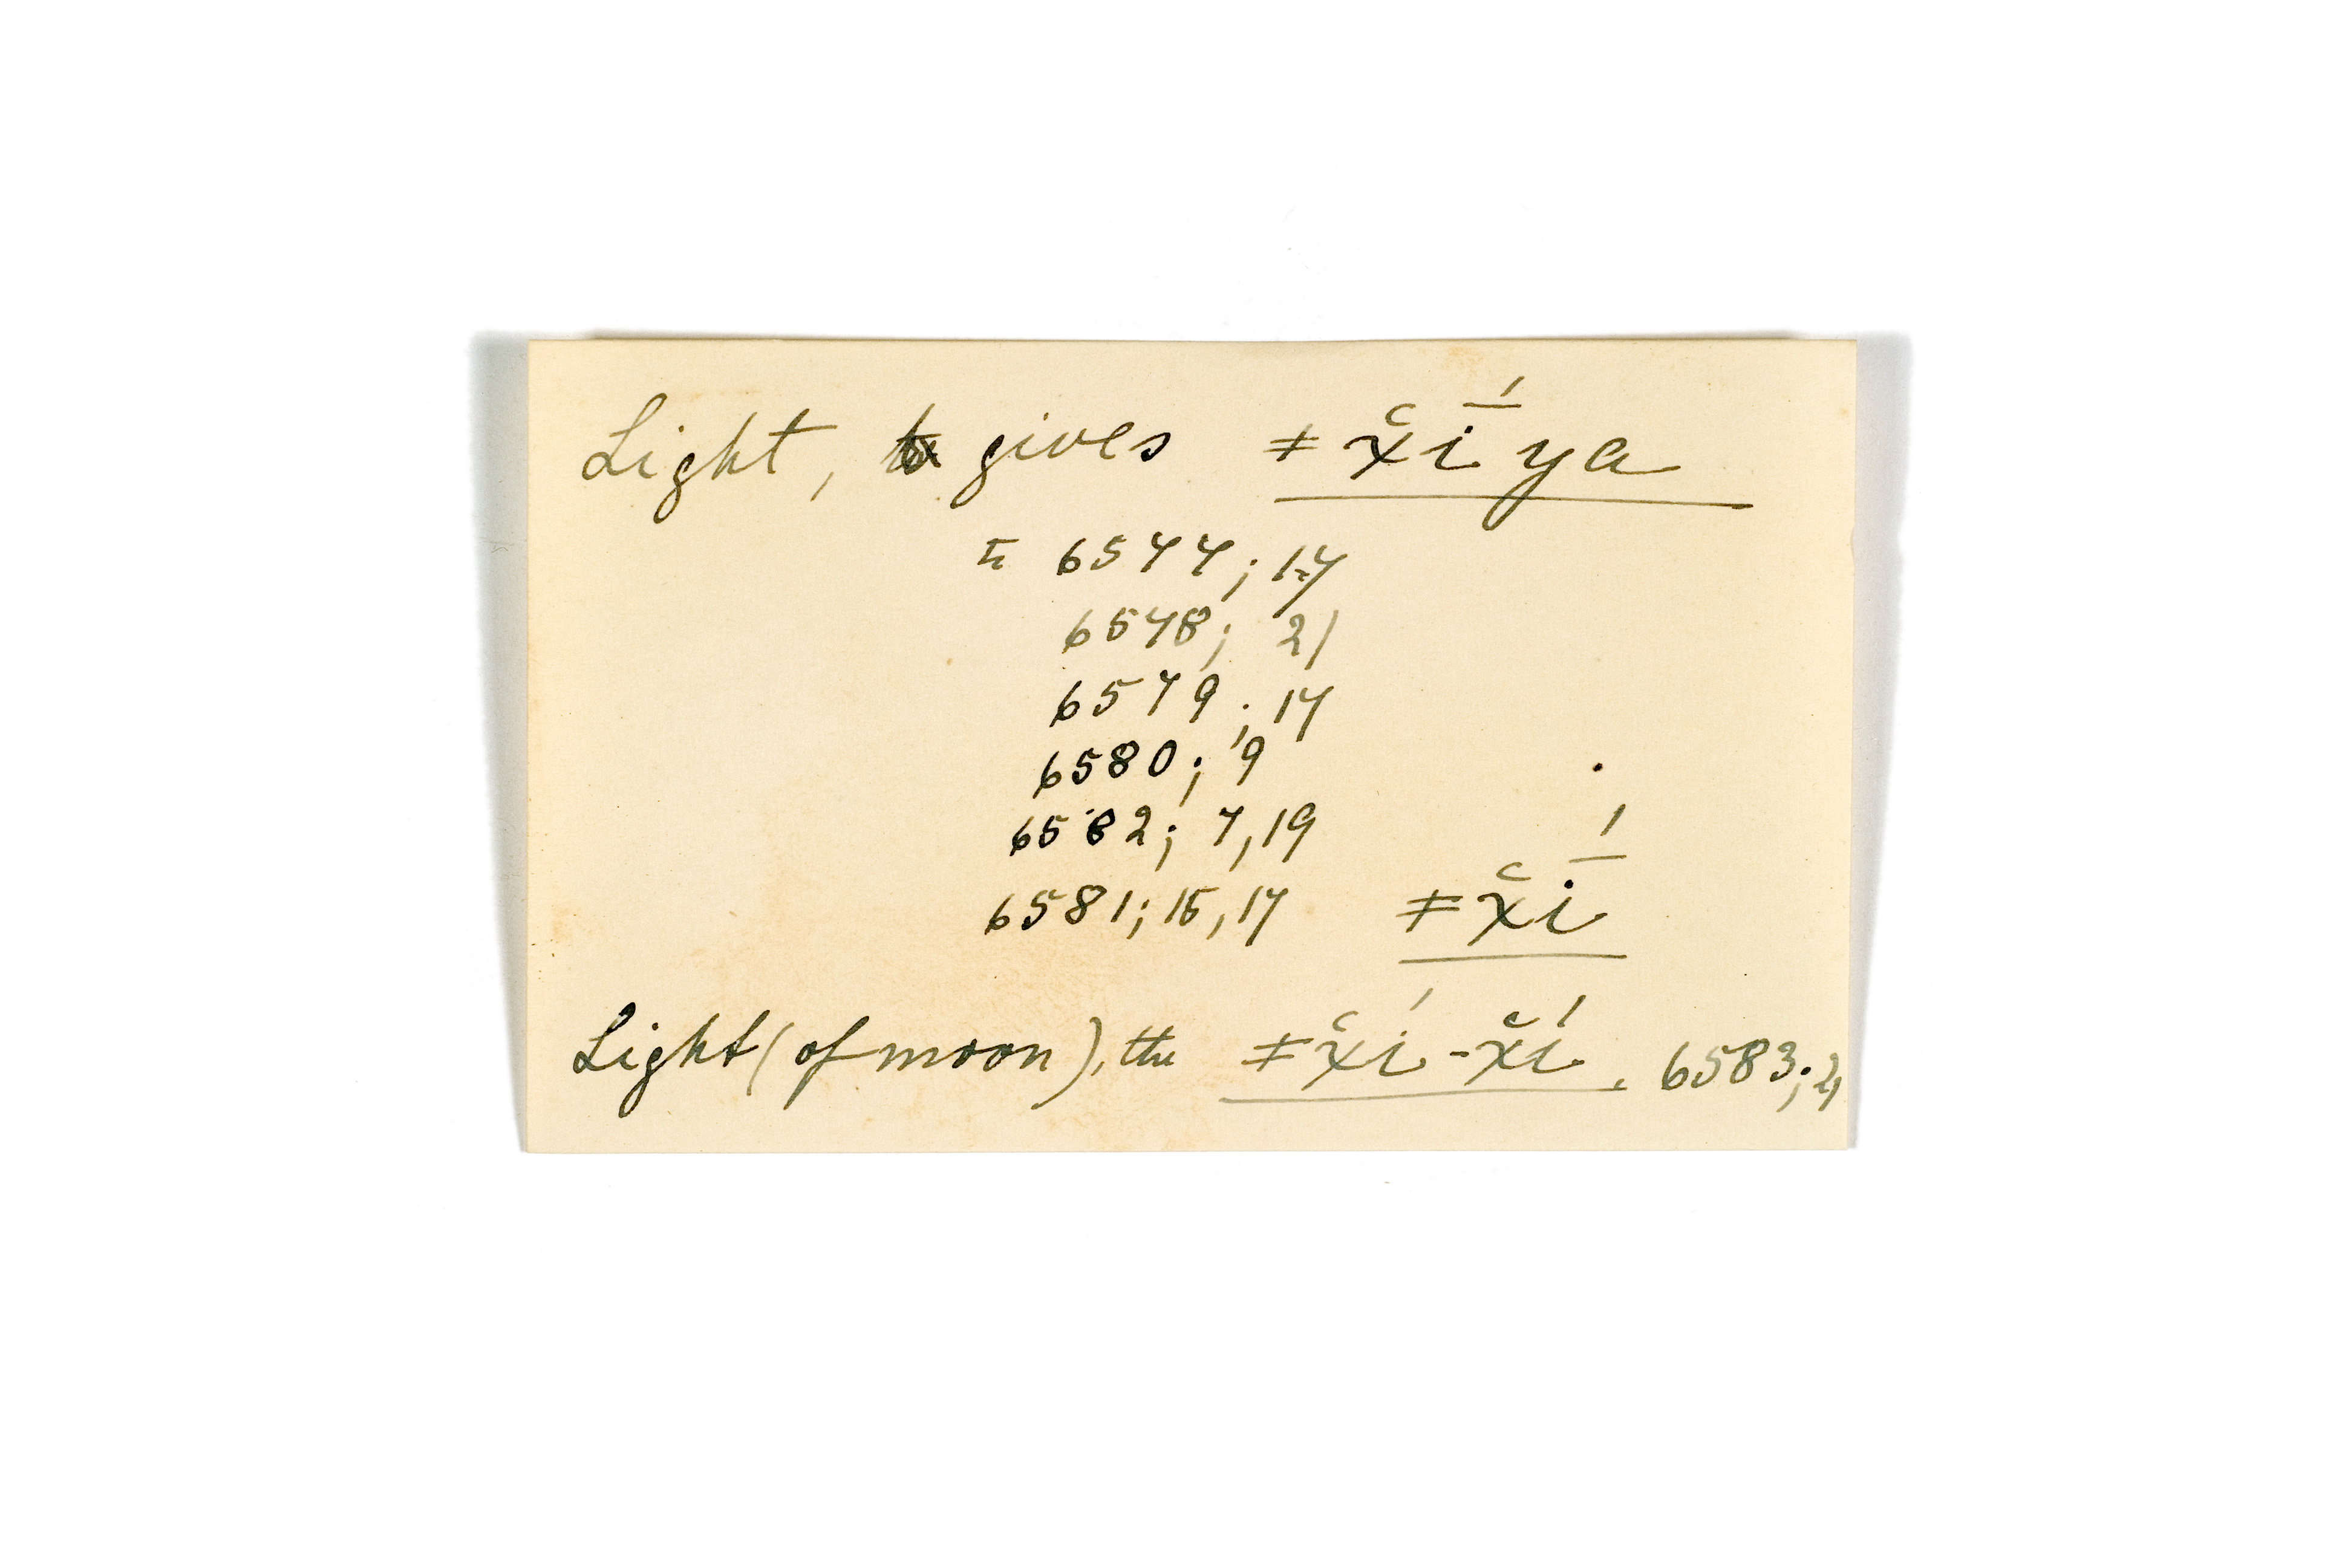 Light, gives ǂx̆ī́ ya
6577; 17
6578; 21
6579; 17
6580; 9
6582; 7,19
6581; 15,17 ǂx̆ī́
Light (of moon), the ǂx̆í-x̆í. 6583;